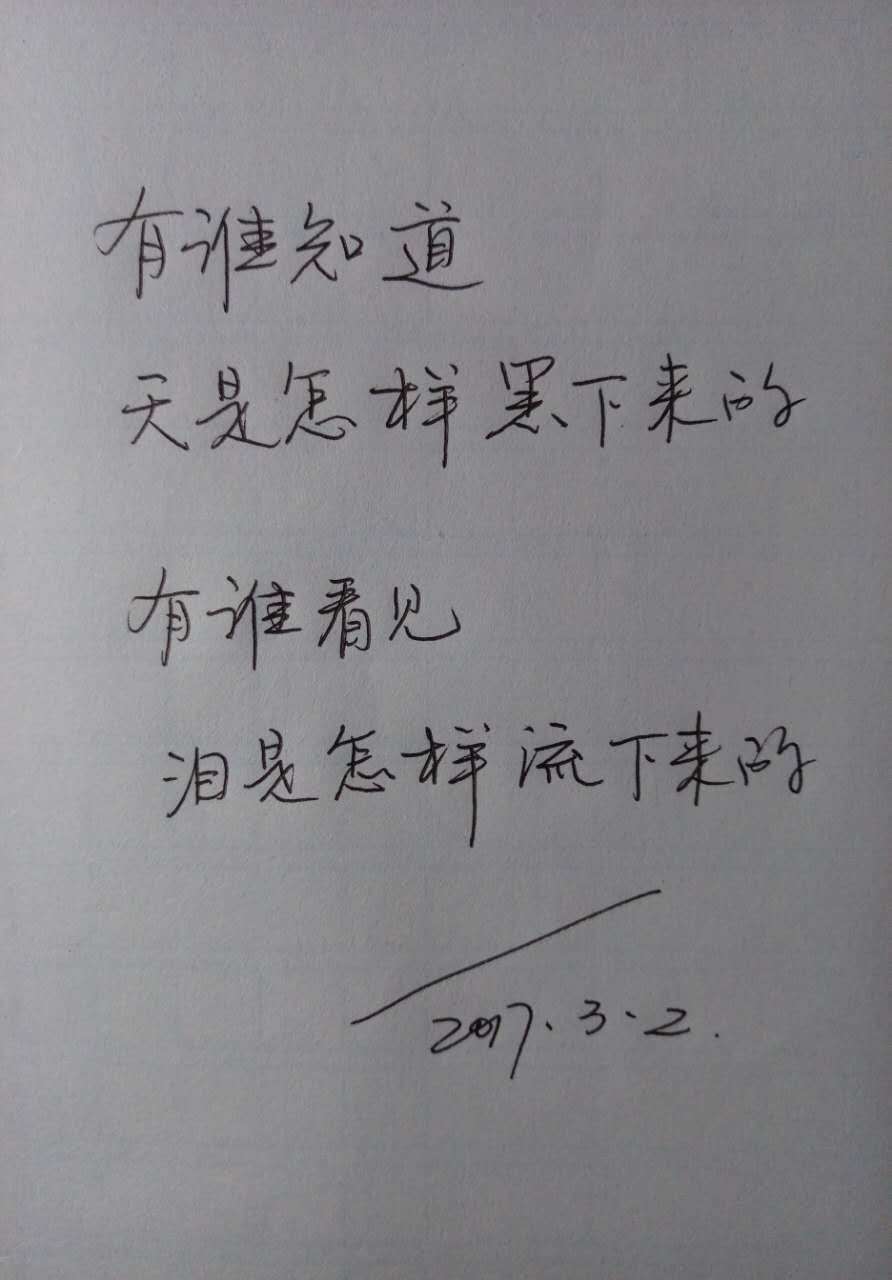 有谁知道
天是怎样黑下来的
有谁看见
泪是怎样流下来的
2017.3.2.